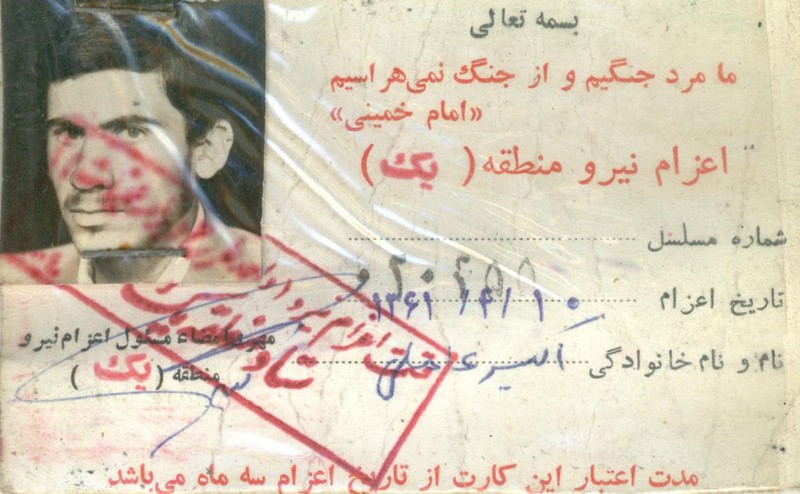 بسمه تعالی
ما مرد جنگیم و از جنگ نمی‌هراسیم
«امام خمینی»
اعزام نیرو منطقه ( یک )
شماره مسلسل
تاریخ اعزام ۱۳۶۱/۴/۱۰
نام و نام خانوادگی
مهر و امضاء مسئول اعزام نیرو
منطقه ( یک )
مدت اعتبار این کارت از تاریخ اعزام سه ماه می‌باشد